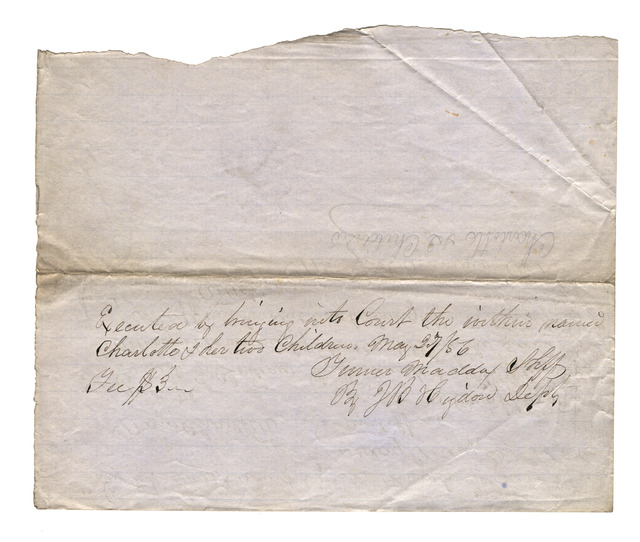 Charlotte & 2 Children
Executed by bringing into Court the within named
Charlotte & her two Children. May 27/56
Turner Maddox Shff
Fee $3.— By J B Higdon Depty